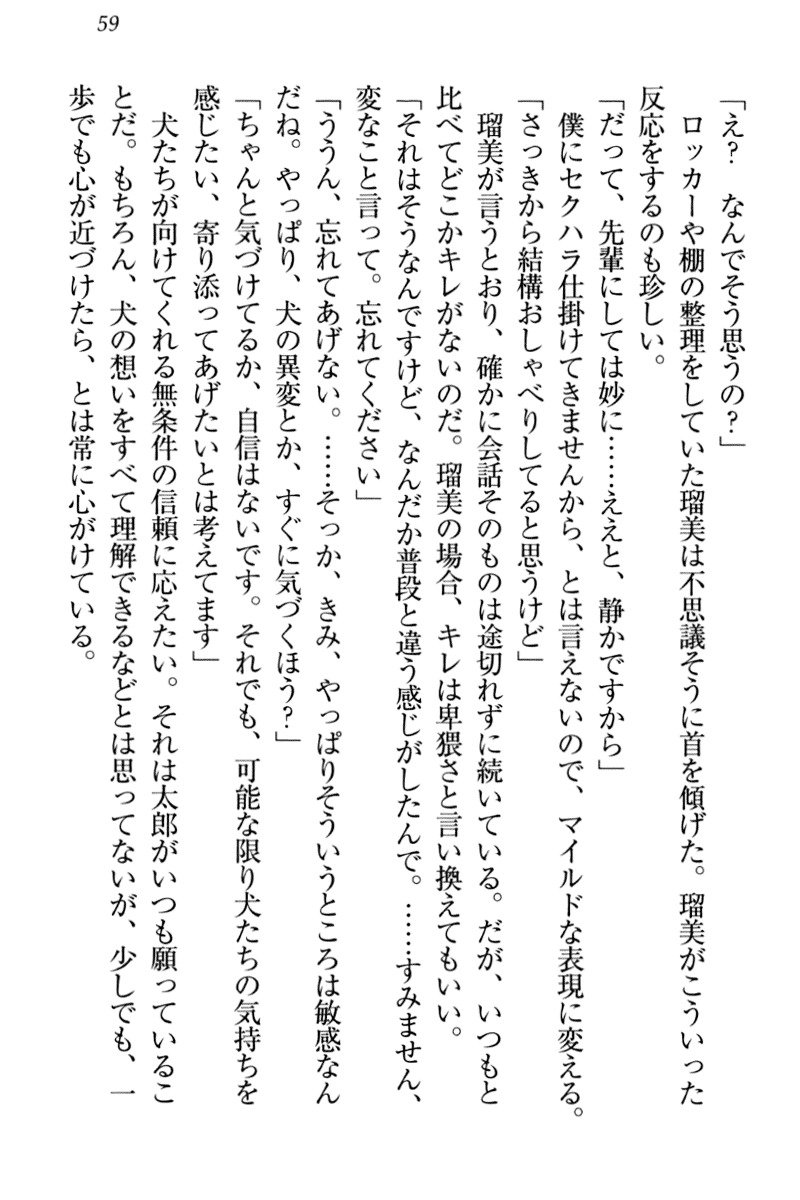 59
「え？　なんでそう思うの？」
　ロッカーや棚の整理をしていた瑠美は不思議そうに首を傾げた。瑠美がこういった
反応をするのも珍しい。
「だって、先輩にしては妙に……ええと、静かですから」
　僕にセクハラ仕掛けてきませんから、とは言えないので、マイルドな表現に変える。
「さっきから結構おしゃべりしてると思うけど」
　瑠美が言うとおり、確かに会話そのものは途切れずに続いている。だが、いつもと
比べてどこかキレがないのだ。瑠美の場合、キレは卑猥さと言い換えてもいい。
「それはそうなんですけど、なんだか普段と違う感じがしたんで。……すみません、
変なこと言って。忘れてください」
「ううん、忘れてあげない。……そっか、きみ、やっぱりそういうところは敏感なん
だね。やっぱり、犬の異変とか、すぐに気づくほう？」
「ちゃんと気づけてるか、自信はないです。それでも、可能な限り犬たちの気持ちを
感じたい、寄り添ってあげたいとは考えてます」
　犬たちが向けてくれる無条件の信頼に応えたい。それは太郎がいつも願っているこ
とだ。もちろん、犬の想いをすべて理解できるなどとは思ってないが、少しでも、一
歩でも心が近づけたら、とは常に心がけている。